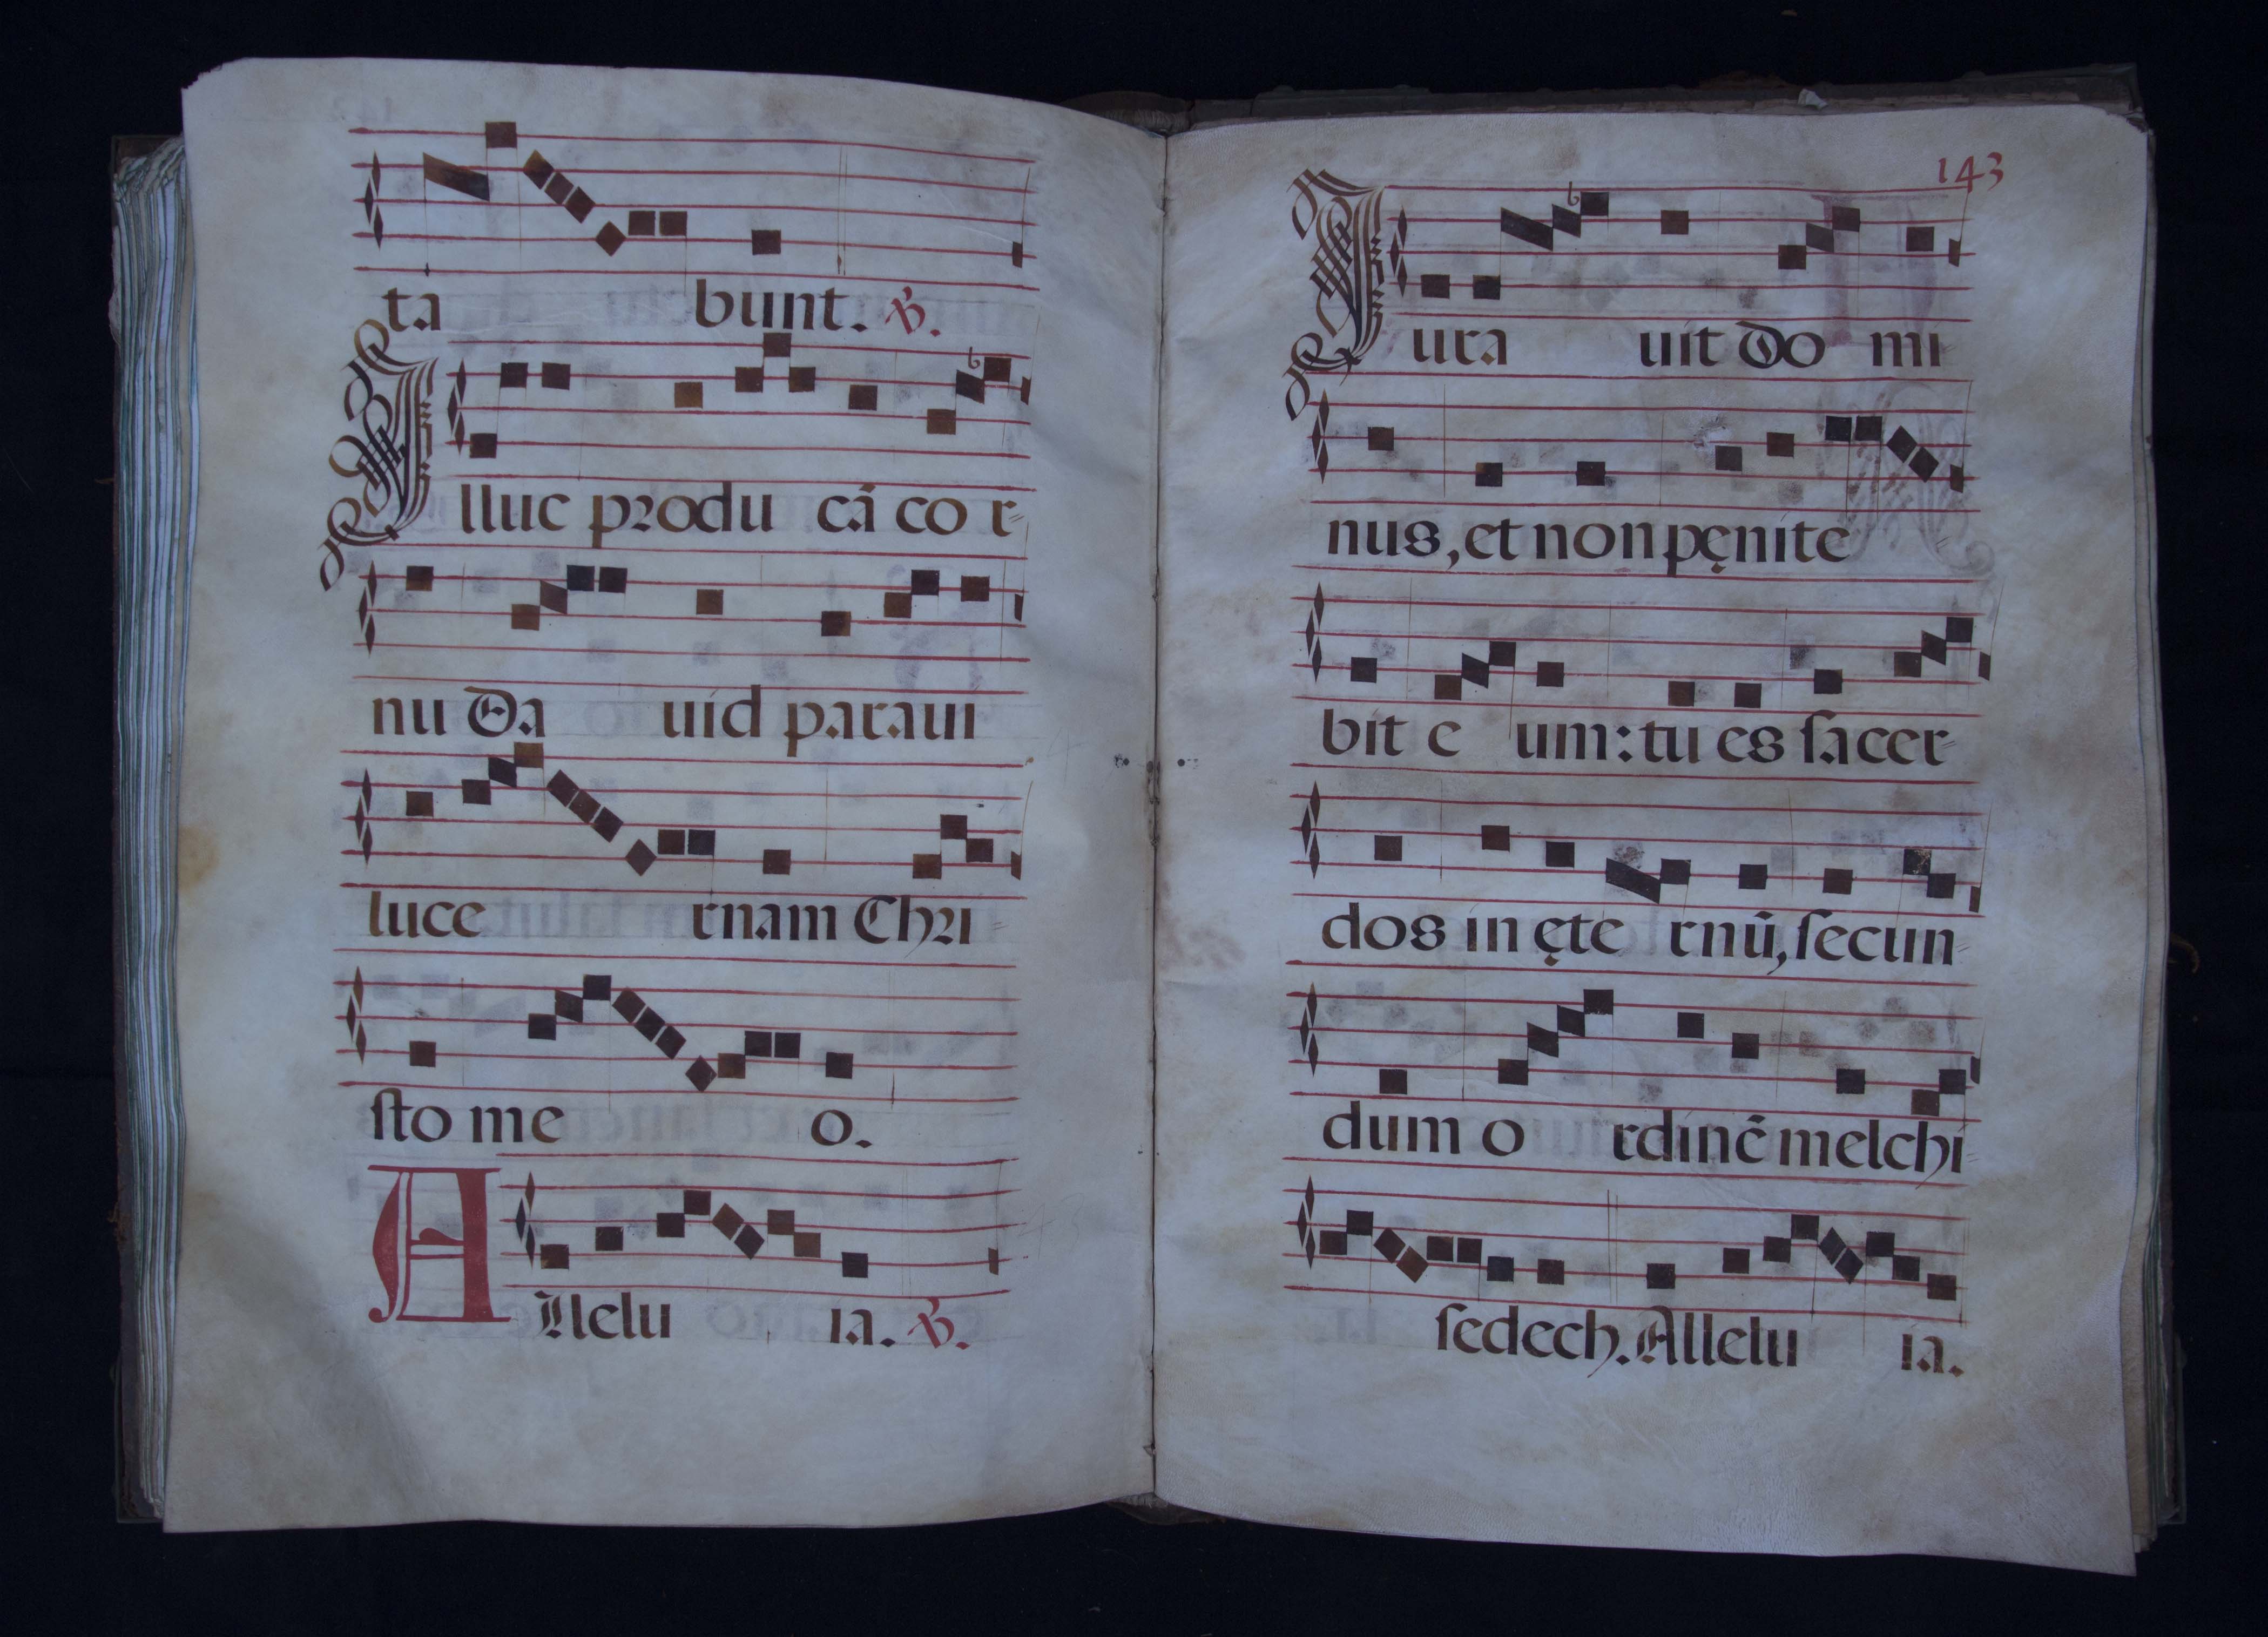 ta bunt. ℣.
Illuc produ cá co r
nu Da uid paraui
luce rnam Chri
sto me o.
Allelu ia. ℣.
143
Iura uit Do mi
nus, et non pęnite
bit e um: tu es sacer
dos in ęte rnū, secun
dum o rdinē melchi
sedech. Allelu ia.